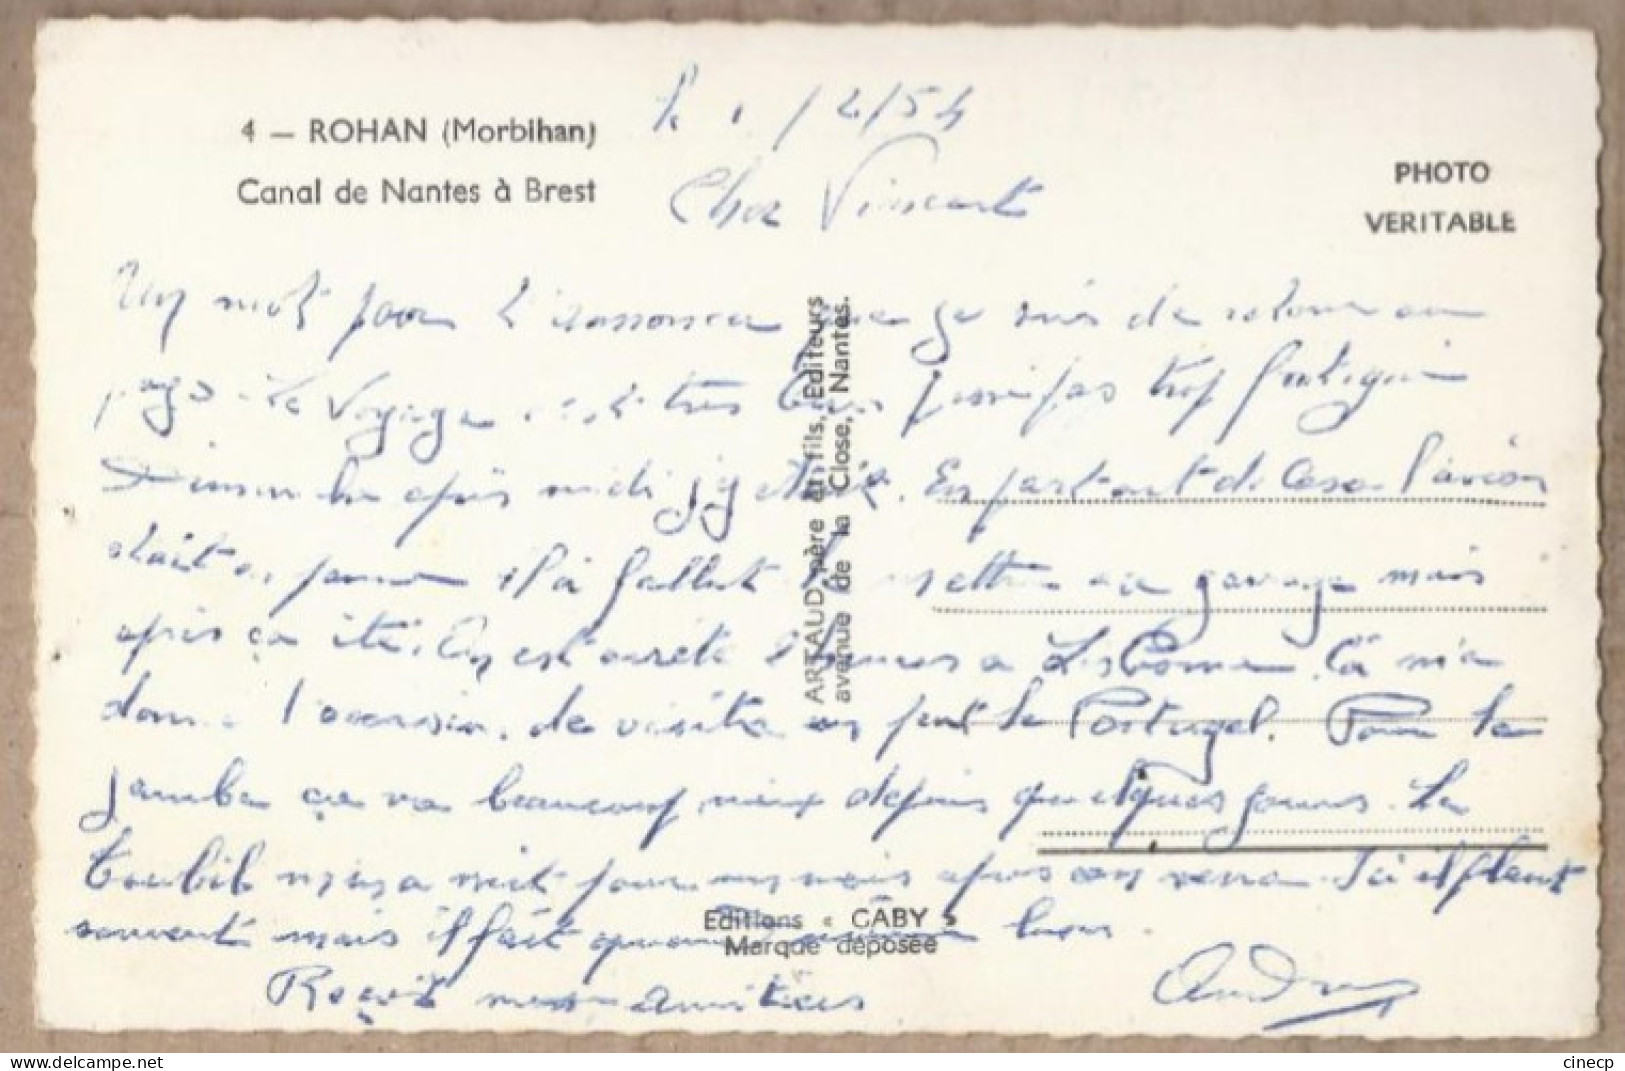 4 — ROHAN (Morbihan)
Canal de Nantes à Brest
PHOTO
VERITABLE
le 1 /2/54
Cher Vincent
Un mot pour t'annoncer que je suis de retour au
pays. Le voyage c'est très bien passé pas trop fatigué
Dimanche après midi j'y étais. En partant de Casa l'avion
était en panne il a fallut le mettre au garage mais
après ça été. On est arrêté 2 heures a Lisbonne. Ca m'a
donné l'occasion de visité un peut le Portugal. Pour la
jambe ça va beaucoup mieux depuis quelques jours. Le
Toubib m'en a mit pour un mois après on verra. Ici il pleut
souvent mais il fait quand même bon.
Reçoit mes amitiés
André
ARTAUD père et fils, Editeurs
avenue de la Close, Nantes.
Editions « GABY »
Marque déposée
cinecp